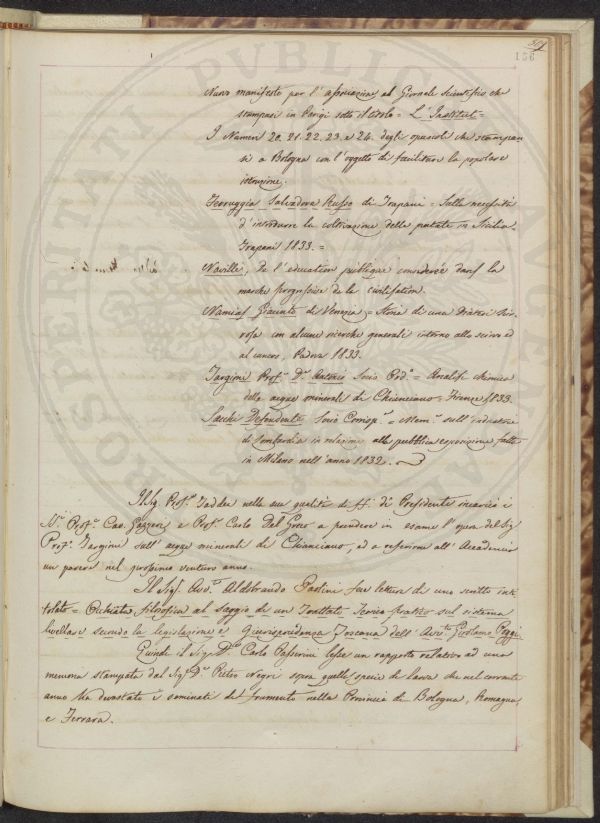 156
Nuovo manifesto per l'associazione al Giornale Scientifico che
stampasi in Parigi sotto il titolo = L'Institut =
I Numeri 20. 21. 22. 23. e 24. degli opuscoli che stampan
si a Bologna con l'oggetto di facilitare la popolare
istruzione.
Ferruggia Salvadore Russo di Trapani = Sulla necessità
d'introdurre la coltivazione delle patate in Sicilia,
Trapani 1833. =
Naville, De l'education publique considerée dans la
marche progressive de la civilisation.
Namias Giacinto di Venezia = Storia di una
con alcune ricerche generali intorno allo scirro ed
al cancro, Padova 1833.
Targioni Prof.e D.r Antonio Socio Ord.o = Analisi chimica
delle acque minerali di Chianciano = Firenze 1833.
Sacchi Defendente Socio Corrisp.e = Mem.a sull'industria
di Lombardia in relazione alla pubblica esposizione fatta
in Milano nell'anno 1832.
Il Sig. Prof.e Taddei nella sua qualità di ff. di Presidente incaricò i
SS.ri Prof.e Cav. Gazzeri, e Prof.e Carlo Del Greco a prendere in esame l'opera del Sig.
Prof.e Targioni sull'acque minerali di Chianciano, ed a referirne all'Accademia
un parere nel prossimo venturo anno.
Il Sig.e Avv.o Aldobrando Paolini fece lettura di uno scritto inti
tolato = Occhiata filosofica al saggio di un Trattato Teorico-pratico sul sistema
livellare secondo la legislazione e Giurisprudenza Toscana dell'Avv.to Girolamo Poggi.
Quindi il Sig.e D.re Carlo Passerini lesse un rapporto relativo ad una
memoria stampata dal Sig.e D.r Pietro Negri sopra quella specie di larva che nel corrente
anno ha devastato i seminati di frumento nella Provincia di Bologna, Romagna,
e Ferrara.